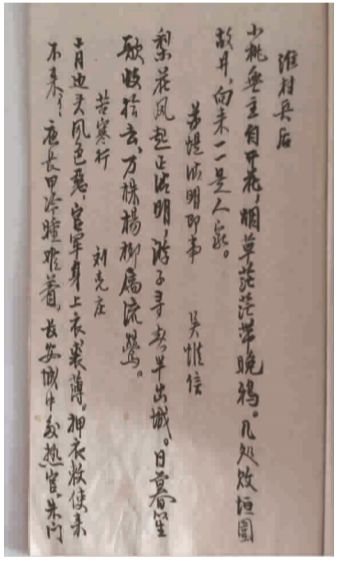 淮村兵后
小桃無主自开花,烟草茫茫带晚鸦。几处败垣围
故井,向来一一是人家。
苏堤清明即事 吴惟信
梨花风起正清明,游子寻春半出城。日暮笙
歌收拾去,万株杨柳属流莺。
苦寒行 刘克庄
十月边头风色恶,官军身上衣裘薄。押衣敕使来
不来,夜长甲冷睡难着,长安城中多热官,朱门